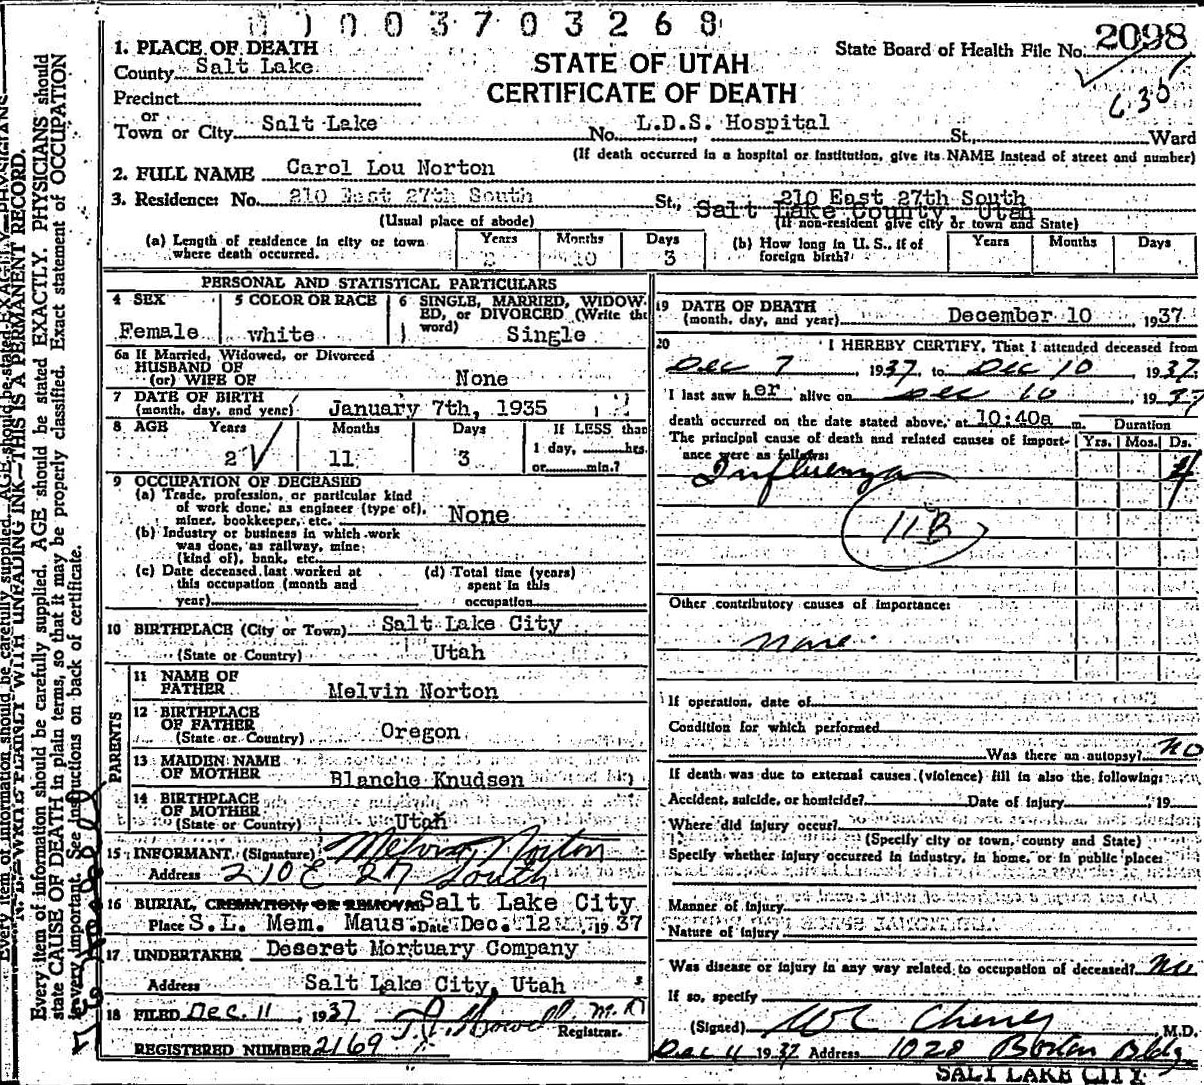 1003703268
State Board of Health File No. 2098
635
STATE OF UTAH
CERTIFICATE OF DEATH
1. PLACE OF DEATH
County Salt Lake
Precinct
or
Town or City Salt Lake No. L.D.S. Hospital St., Ward
(If death occurred in a hospital or institution, give its NAME instead of street and number)
2. FULL NAME Carol Lou Norton
3. Residence: No. 210 East 27th South St., 210 East 27th South
Salt Lake County, Utah
(Usual place of abode) (If non-resident give city or town and State)
(a) Length of residence in city or town where death occurred. Years 2 Months 10 Days 3
(b) How long in U. S., if of foreign birth? Years Months Days
PERSONAL AND STATISTICAL PARTICULARS
4 SEX Female
5 COLOR OR RACE white
6 SINGLE, MARRIED, WIDOWED, or DIVORCED (Write the word) Single
6a If Married, Widowed, or Divorced
HUSBAND OF
(or) WIFE OF None
7 DATE OF BIRTH
(month, day, and year) January 7th, 1935
8 AGE Years 2 Months 11 Days 3 If LESS than 1 day, hrs. or min.?
9 OCCUPATION OF DECEASED
(a) Trade, profession, or particular kind
of work done, as engineer (type of),
miner, bookkeeper, etc. None
(b) Industry or business in which work
was done, as railway, mine
(kind of), bank, etc.
(c) Date deceased last worked at
this occupation (month and
year)
(d) Total time (years)
spent in this
occupation
10 BIRTHPLACE (City or Town) Salt Lake City
(State or Country) Utah
PARENTS
11 NAME OF
FATHER Melvin Norton
12 BIRTHPLACE
OF FATHER
(State or Country) Oregon
13 MAIDEN NAME
OF MOTHER Blanche Knudsen
14 BIRTHPLACE
OF MOTHER
(State or Country) Utah
15 INFORMANT (Signature) Melvin Norton
Address 210 E 27 South
16 BURIAL, CREMATION, OR REMOVAL Salt Lake City
Place S.L. Mem. Maus. Date Dec. 12 1937
17 UNDERTAKER Deseret Mortuary Company
Address Salt Lake City, Utah
18 FILED Dec. 11, 1937 M.D.
Registrar.
REGISTERED NUMBER 2169
19 DATE OF DEATH
(month, day, and year) December 10 1937
20 I HEREBY CERTIFY, That I attended deceased from
Dec 7 1937, to Dec 10 1937,
I last saw her alive on Dec 10, 1937
death occurred on the date stated above, at 10:40a m. Duration
The principal cause of death and related causes of importance were as follows: Yrs. Mos. Ds.
Influenza 4
11B
Other contributory causes of importance:
none
If operation, date of
Condition for which performed
Was there an autopsy? no
If death was due to external causes (violence) fill in also the following:
Accident, suicide, or homicide? Date of injury , 19
Where did injury occur?
(Specify city or town, county and State)
Specify whether injury occurred in industry, in home, or in public place:
Manner of injury
Nature of injury
Was disease or injury in any way related to occupation of deceased? no
If so, specify
(Signed) Cheney M.D.
Dec 11 1937 Address 1028 Boston Bldg
SALT LAKE CITY
WRITE PLAINLY WITH UNFADING INK—THIS IS A PERMANENT RECORD.
Every item of information should be carefully supplied. AGE should be stated EXACTLY. PHYSICIANS should
state CAUSE OF DEATH in plain terms, so that it may be properly classified. Exact statement of OCCUPATION
is very important. See instructions on back of certificate.